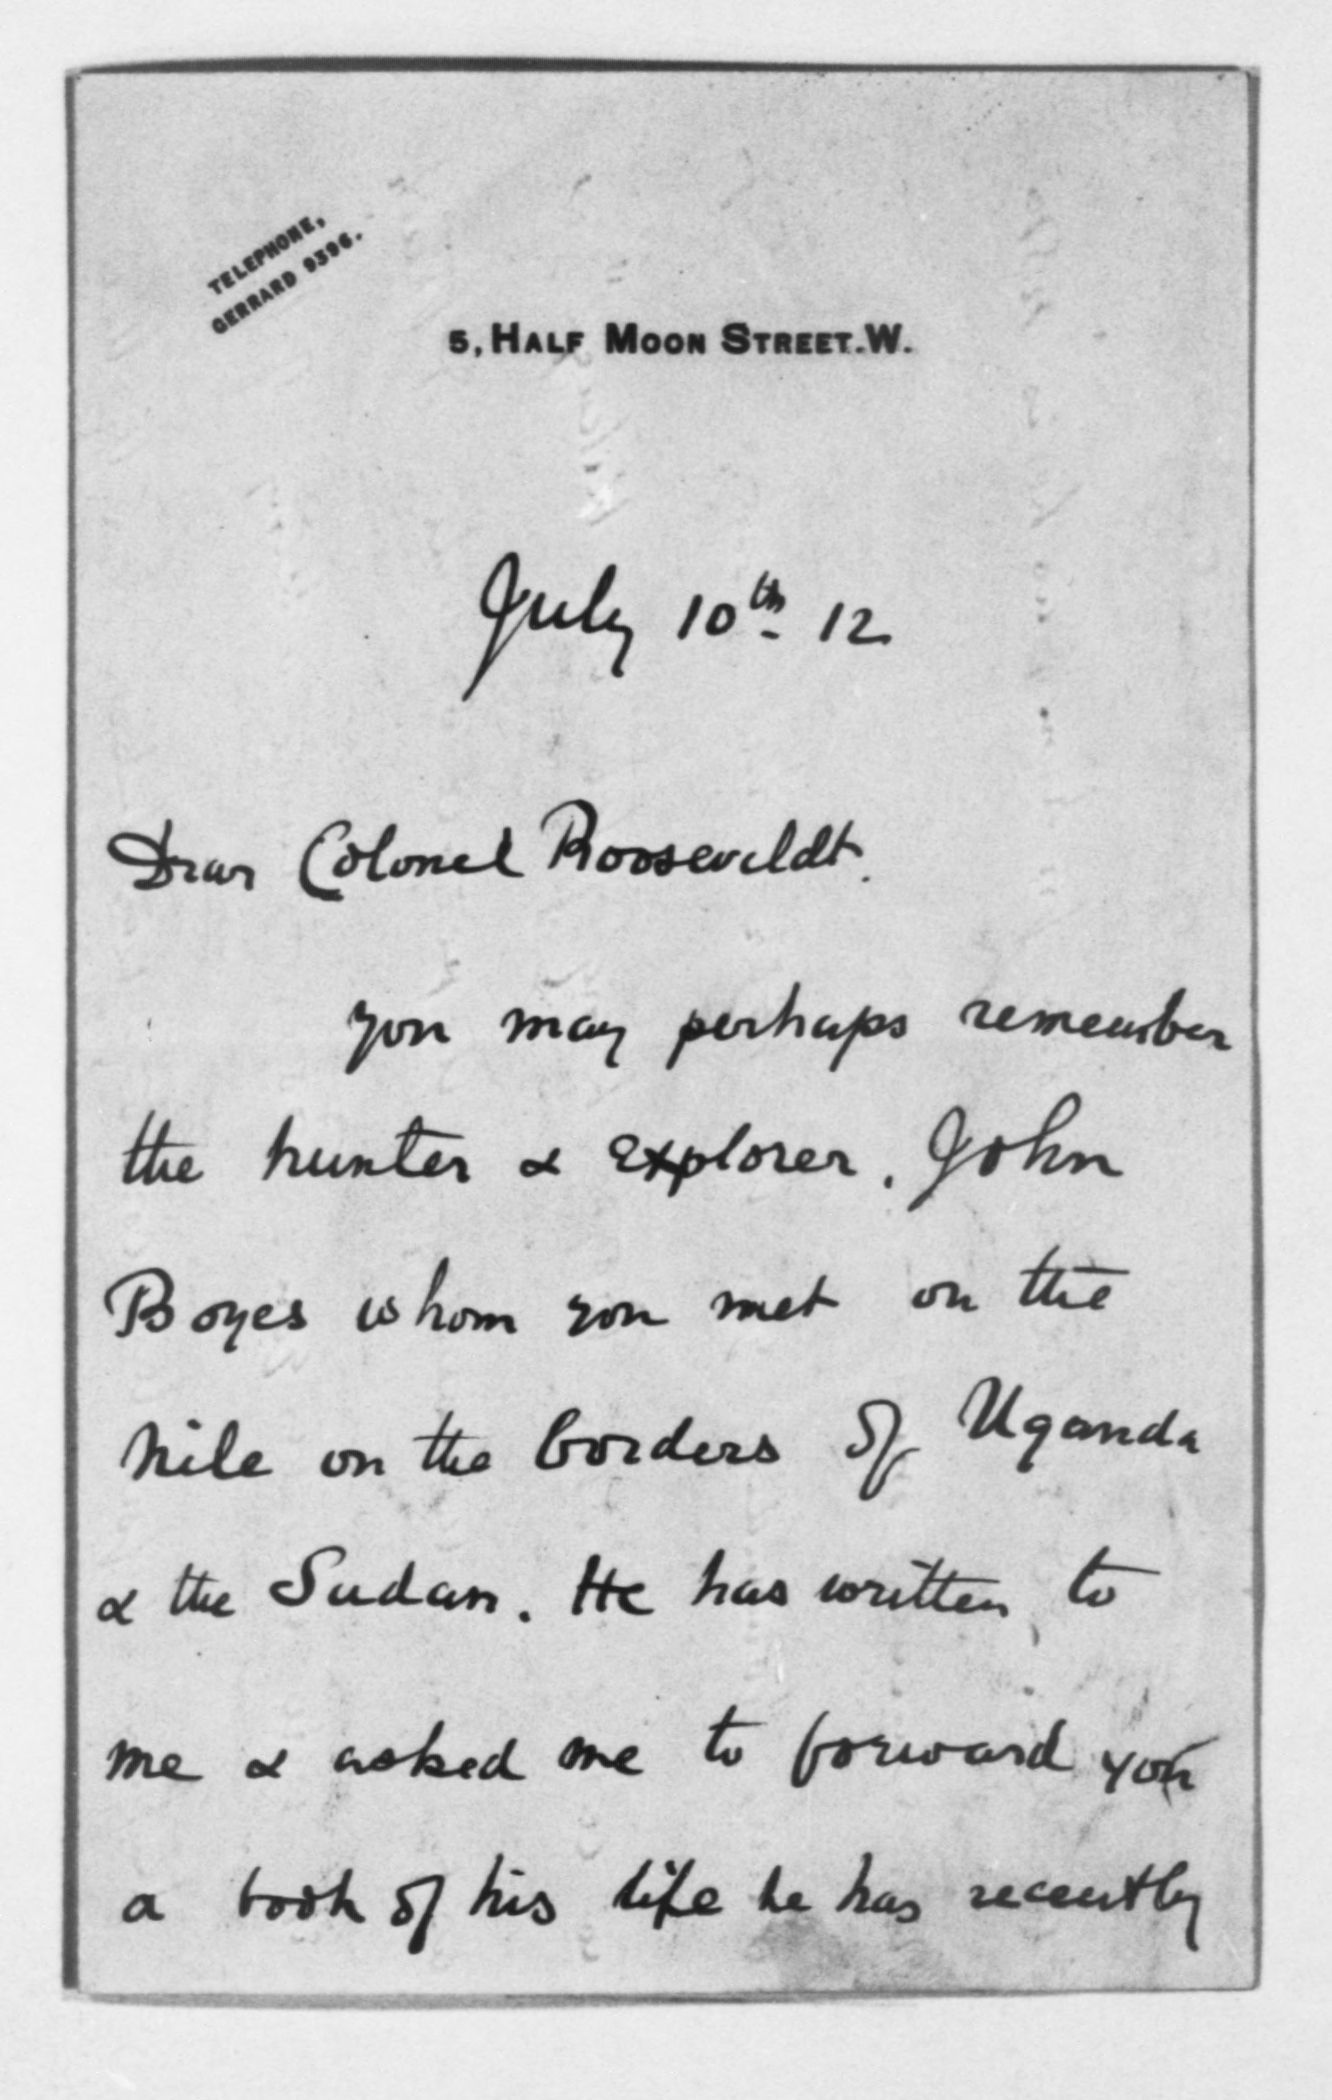 TELEPHONE,
GERRARD 9396.
5, HALF MOON STREET. W.
July 10th 12
Dear Colonel Rooseveldt.
you may perhaps remember
the hunter & explorer, John
Boyes whom you met on the
Nile on the borders of Uganda
& the Sudan. He has written to
me & asked me to forward you
a book of his life he has recently